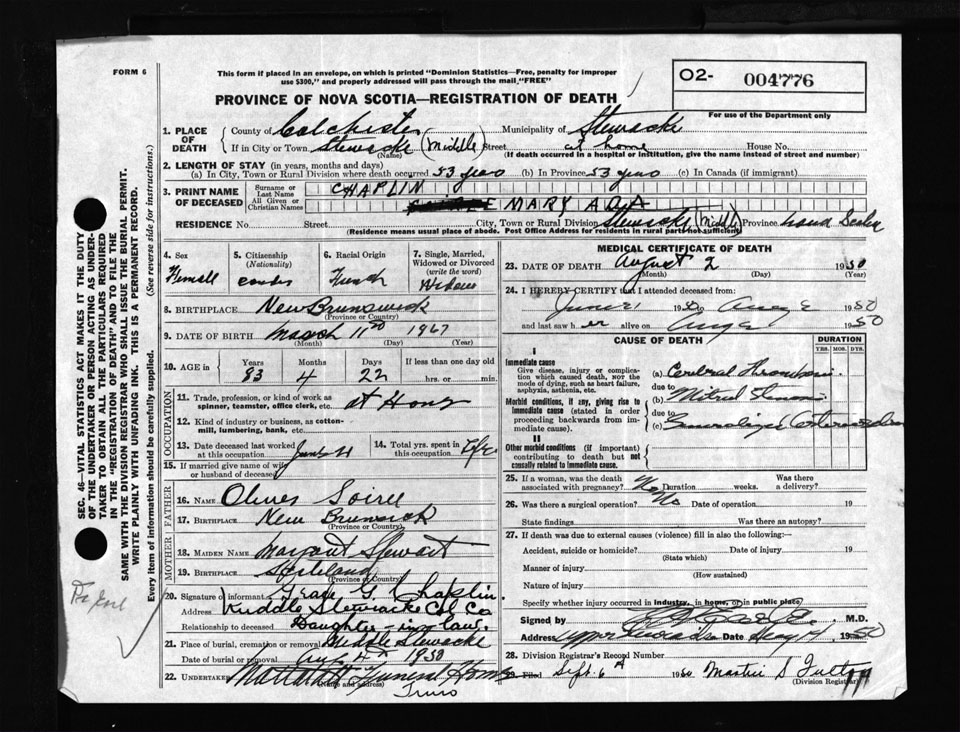 FORM 6
This form if placed in an envelope, on which is printed "Dominion Statistics—Free, penalty for improper
use $300," and properly addressed will pass through the mail, "FREE"
O2- 004776
For use of the Department only
PROVINCE OF NOVA SCOTIA—REGISTRATION OF DEATH
1. PLACE OF DEATH
County of Colchester Municipality of Stewiacke
If in City or Town Stewiacke (Middle) Street at home House No.
(Name) (If death occurred in a hospital or institution, give the name instead of street and number)
2. LENGTH OF STAY (in years, months and days)
(a) In City, Town or Rural Division where death occurred 53 years (b) In Province 53 years (c) In Canada (if immigrant)
3. PRINT NAME OF DECEASED
Surname or Last Name CHAPLIN
All Given or Christian Names MARY ADA
RESIDENCE No. Street City, Town or Rural Division Stewiacke (Middle) Province Nova Scotia
(Residence means usual place of abode. Post Office Address for residents in rural parts not sufficient)
4. Sex Female
5. Citizenship (Nationality)
6. Racial Origin French
7. Single, Married, Widowed or Divorced (write the word) Widow
8. BIRTHPLACE New Brunswick
(Province or Country)
9. DATE OF BIRTH March 11 1867
(Month) (Day) (Year)
10. AGE in Years Months Days If less than one day old
83 4 22 hrs. or min.
OCCUPATION
11. Trade, profession, or kind of work as spinner, teamster, office clerk, etc. at Home
12. Kind of industry or business, as cotton-mill, lumbering, bank, etc.
13. Date deceased last worked at this occupation
14. Total yrs. spent in this occupation Life
15. If married give name of wife or husband of deceased
FATHER
16. NAME Oliver
17. BIRTHPLACE New Brunswick
(Province or Country)
MOTHER
18. MAIDEN NAME Margaret Stewart
19. BIRTHPLACE Scotland
(Province or Country)
20. Signature of informant Grace G. Chaplin
Address Middle Stewiacke Col Co
Relationship to deceased Daughter-in-law.
21. Place of burial, cremation or removal Middle Stewiacke
Date of burial or removal Aug 4 1950
22. UNDERTAKER Funeral Home
(Name and address)
Truro
MEDICAL CERTIFICATE OF DEATH
23. DATE OF DEATH August 2 1950
(Month) (Day) (Year)
24. I HEREBY CERTIFY that I attended deceased from:
June 1950 to Aug 2 1950
and last saw h er alive on Aug 2 1950
CAUSE OF DEATH
DURATION
YRS. MOS. DYS.
I
Immediate cause
Give disease, injury or complication which caused death, NOT the mode of dying, such as heart failure, asphyxia, asthenia, etc.
(a) Cerebral Thrombosis.
due to
Morbid conditions, if any, giving rise to immediate cause (stated in order proceeding backwards from immediate cause).
(b) Mitral Stenosis
due to
(c) Generalized Arteriosclerosis
II
Other morbid conditions (if important) contributing to death but not causally related to immediate cause.
25. If a woman, was the death associated with pregnancy? No Duration weeks. Was there a delivery?
26. Was there a surgical operation? No Date of operation 19
State findings Was there an autopsy?
27. If death was due to external causes (violence) fill in also the following:—
Accident, suicide or homicide? Date of injury 19
(State which)
Manner of injury
(How sustained)
Nature of injury
Specify whether injury occurred in industry, in home, or in public place
Signed by M.D.
Address Upper Stewiacke Date 1950
28. Division Registrar's Record Number
29. Filed Sept. 6 1950 Martin S Fulton
(Division Registrar)
SEC. 46—VITAL STATISTICS ACT MAKES IT THE DUTY
OF THE UNDERTAKER OR PERSON ACTING AS UNDER-
TAKER TO OBTAIN ALL THE PARTICULARS REQUIRED
IN THE "REGISTRATION OF DEATH" AND TO FILE THE
SAME WITH THE DIVISION REGISTRAR WHO SHALL ISSUE THE BURIAL PERMIT.
WRITE PLAINLY WITH UNFADING INK. THIS IS A PERMANENT RECORD.
Every item of information should be carefully supplied. (See reverse side for instructions.)